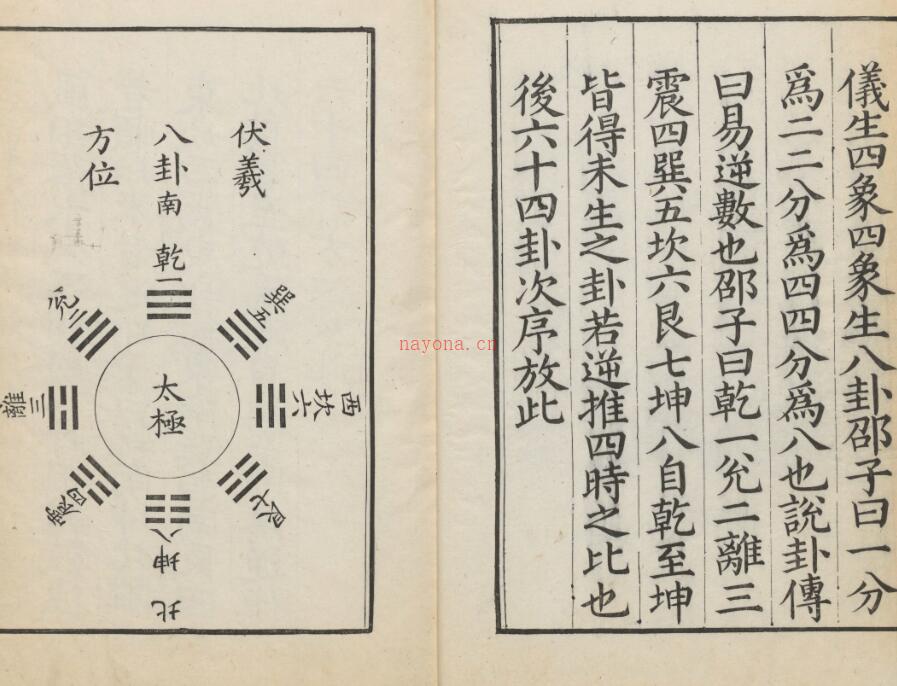 儀生四象四象生八卦邵子曰一分
爲二二分爲四四分爲八也說卦傳
曰易逆數也邵子曰乾一兊二離三
震四巽五坎六艮七坤八自乾至坤
皆得未生之卦若逆推四時之比也
後六十四卦次序放此
伏羲
八卦
方位
南
乾一
兊二
離三
震四
巽五
西
坎六
艮七
坤八
北
太極
nayona.cn